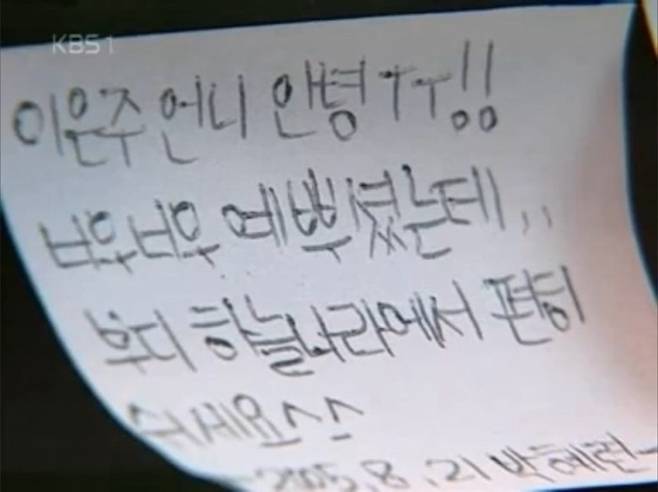 KBS1
이은주 언니 안녕 ㅜㅜ!!
너무너무 예쁘셨는데,,
부디 하늘나라에서 편히
쉬세요^^
-2005.8.21 박혜련-